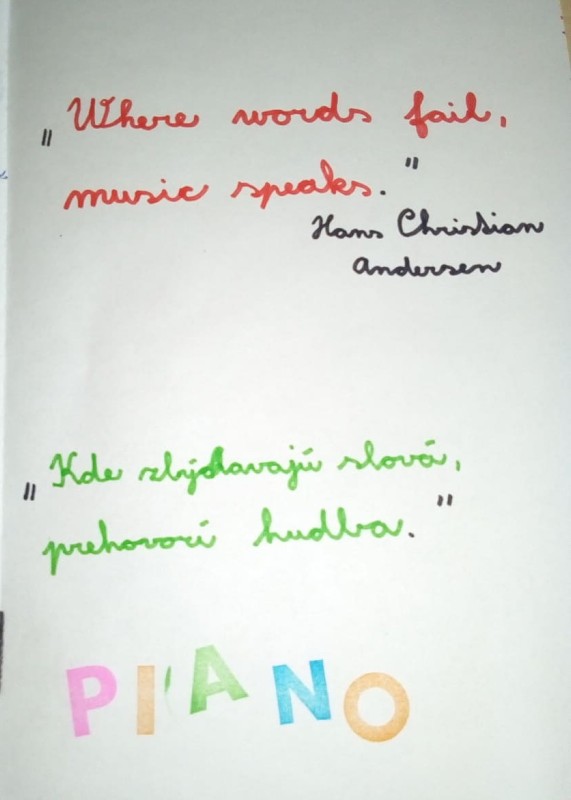 „Where words fail,
music speaks."
Hans Christian
Andersen
„Kde zlýhavajú slová,
prehovorí hudba."
PIANO